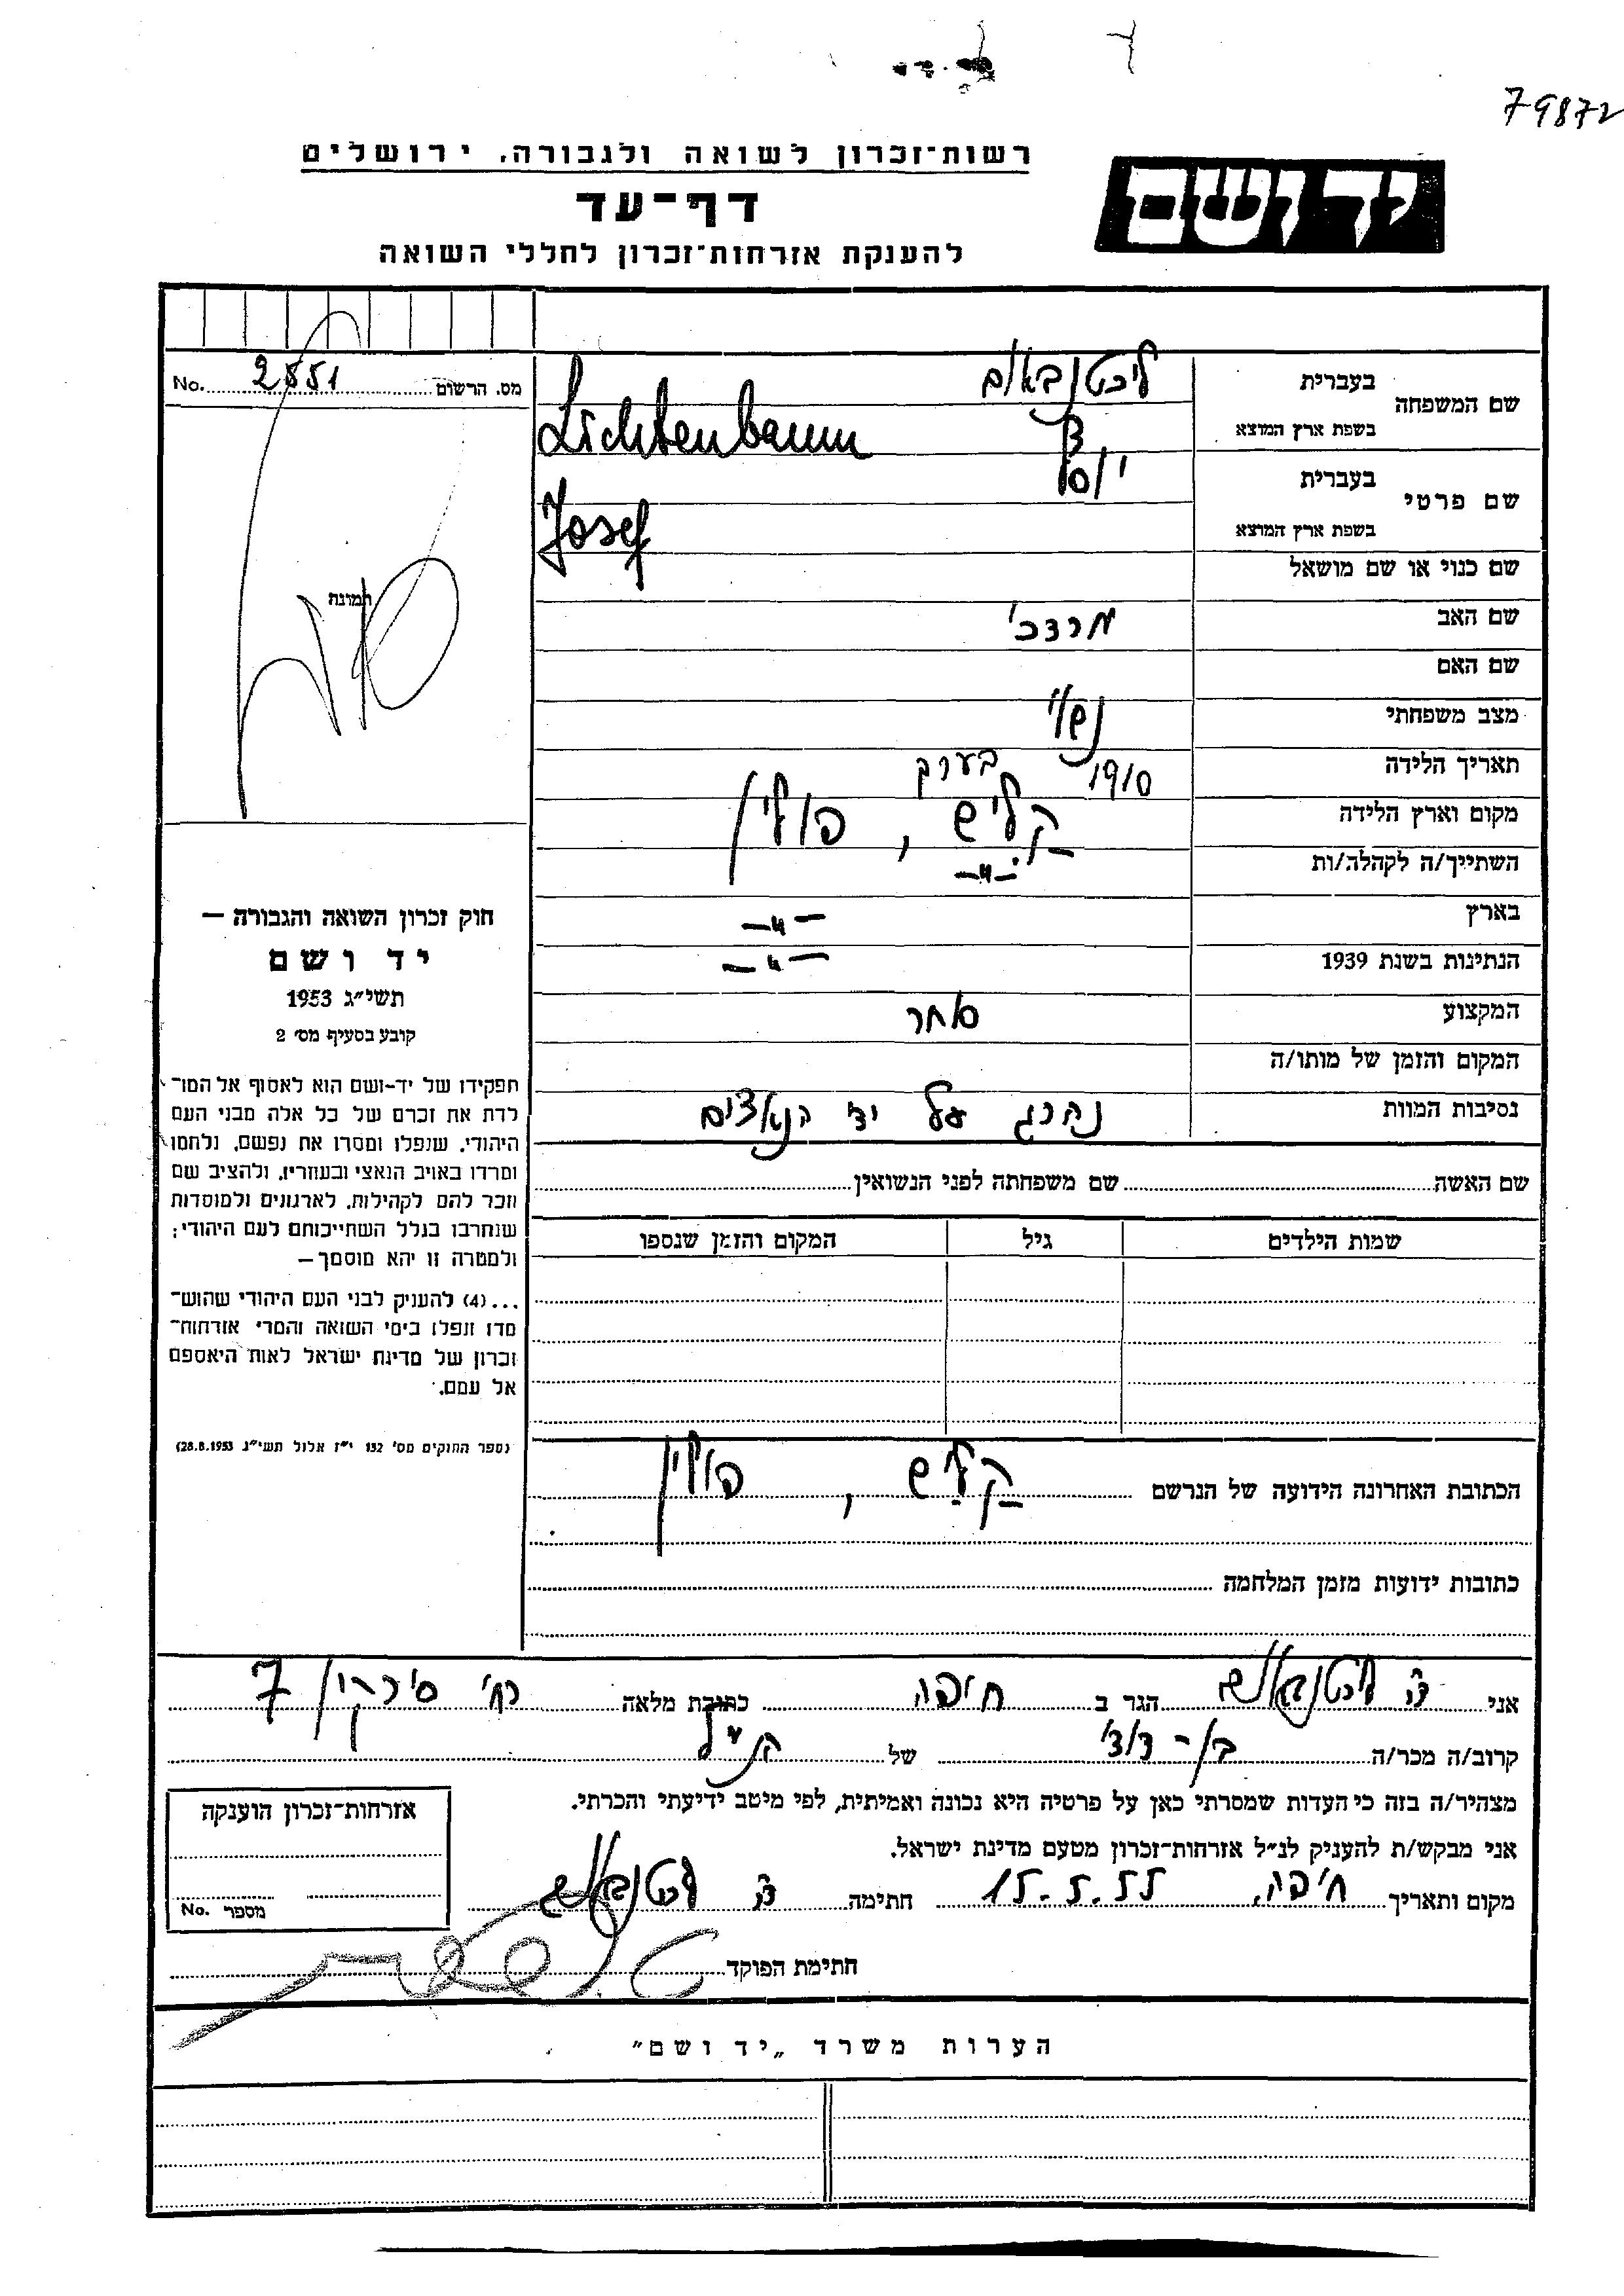 79872
רשות־זכרון לשואה ולגבורה, ירושלים
יד ושם
דף-עד
להענקת אזרחות־זכרון לחללי השואה
מס. הרשום 2551 No.
תמונה
שם המשפחה
בעברית ליכטנבאום
בשפת ארץ המוצא Lichtenbaum
שם פרטי
בעברית יוסף
בשפת ארץ המוצא Josef
שם כנוי או שם מושאל
שם האב מרדכי
שם האם
מצב משפחתי נשוי
תאריך הלידה 1910 בערך
מקום וארץ הלידה קליש, פולין
השתייך/ה לקהלה/ות -״-
בארץ -״-
הנתינות בשנת 1939 -״-
המקצוע סוחר
המקום והזמן של מותו/ה
נסיבות המוות נהרג על ידי הנאצים
שם האשה שם משפחתה לפני הנשואין
שמות הילדים גיל המקום והזמן שנספו
הכתובת האחרונה הידועה של הנרשם קליש, פולין
כתובות ידועות מזמן המלחמה
חוק זכרון השואה והגבורה —
יד ושם
תשי״ג 1953
קובע בסעיף מס׳ 2
תפקידו של יד-ושם הוא לאסוף אל המו־
לדת את זכרם של כל אלה מבני העם
היהודי, שנפלו ומסרו את נפשם, נלחמו
ומרדו באויב הנאצי ובעוזריו, ולהציב שם
וזכר להם לקהילות, לארגונים ולמוסדות
שנחרבו בגלל השתייכותם לעם היהודי;
ולמטרה זו יהא מוסמך —
...(4) להעניק לבני העם היהודי שהוש־
מדו ונפלו בימי השואה והמרי אזרחות־
זכרון של מדינת ישראל לאות היאספם
אל עמם.
(ספר החוקים מס׳ 132 י״ז אלול תשי״ג 28.8.1953)
אני ליכטנבאום הגר ב חיפה כתובת מלאה רח׳ סירקין 7
קרוב/ה מכר/ה בן-דודי של הנ״ל
מצהיר/ה בזה כי העדות שמסרתי כאן על פרטיה היא נכונה ואמיתית, לפי מיטב ידיעתי והכרתי.
אני מבקש/ת להעניק לנ״ל אזרחות־זכרון מטעם מדינת ישראל.
מקום ותאריך חיפה, 15.5.55 חתימה ליכטנבאום
אזרחות־זכרון הוענקה
מספר No.
חתימת הפוקד
הערות משרד „יד ושם״